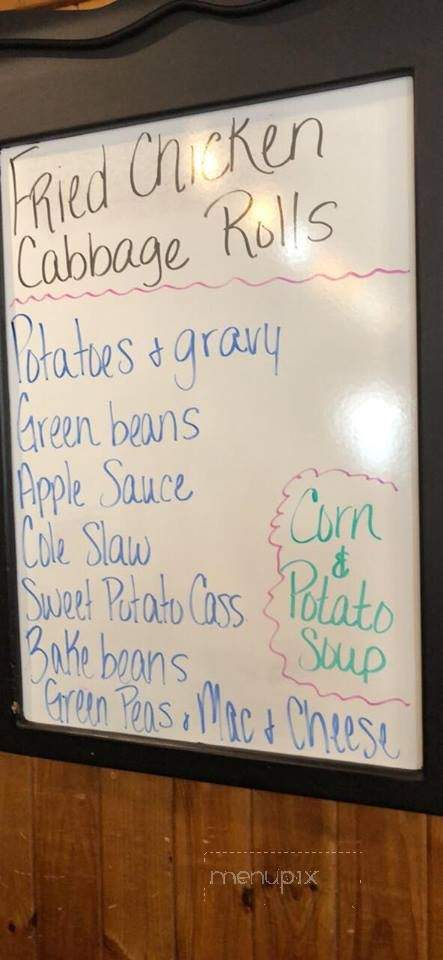 Fried Chicken
Cabbage Rolls
Potatoes & gravy
Green beans
Apple Sauce
Cole Slaw
Sweet Potato Cass
Bake beans
Green Peas & Mac & Cheese
Corn
&
Potato
Soup
menupix